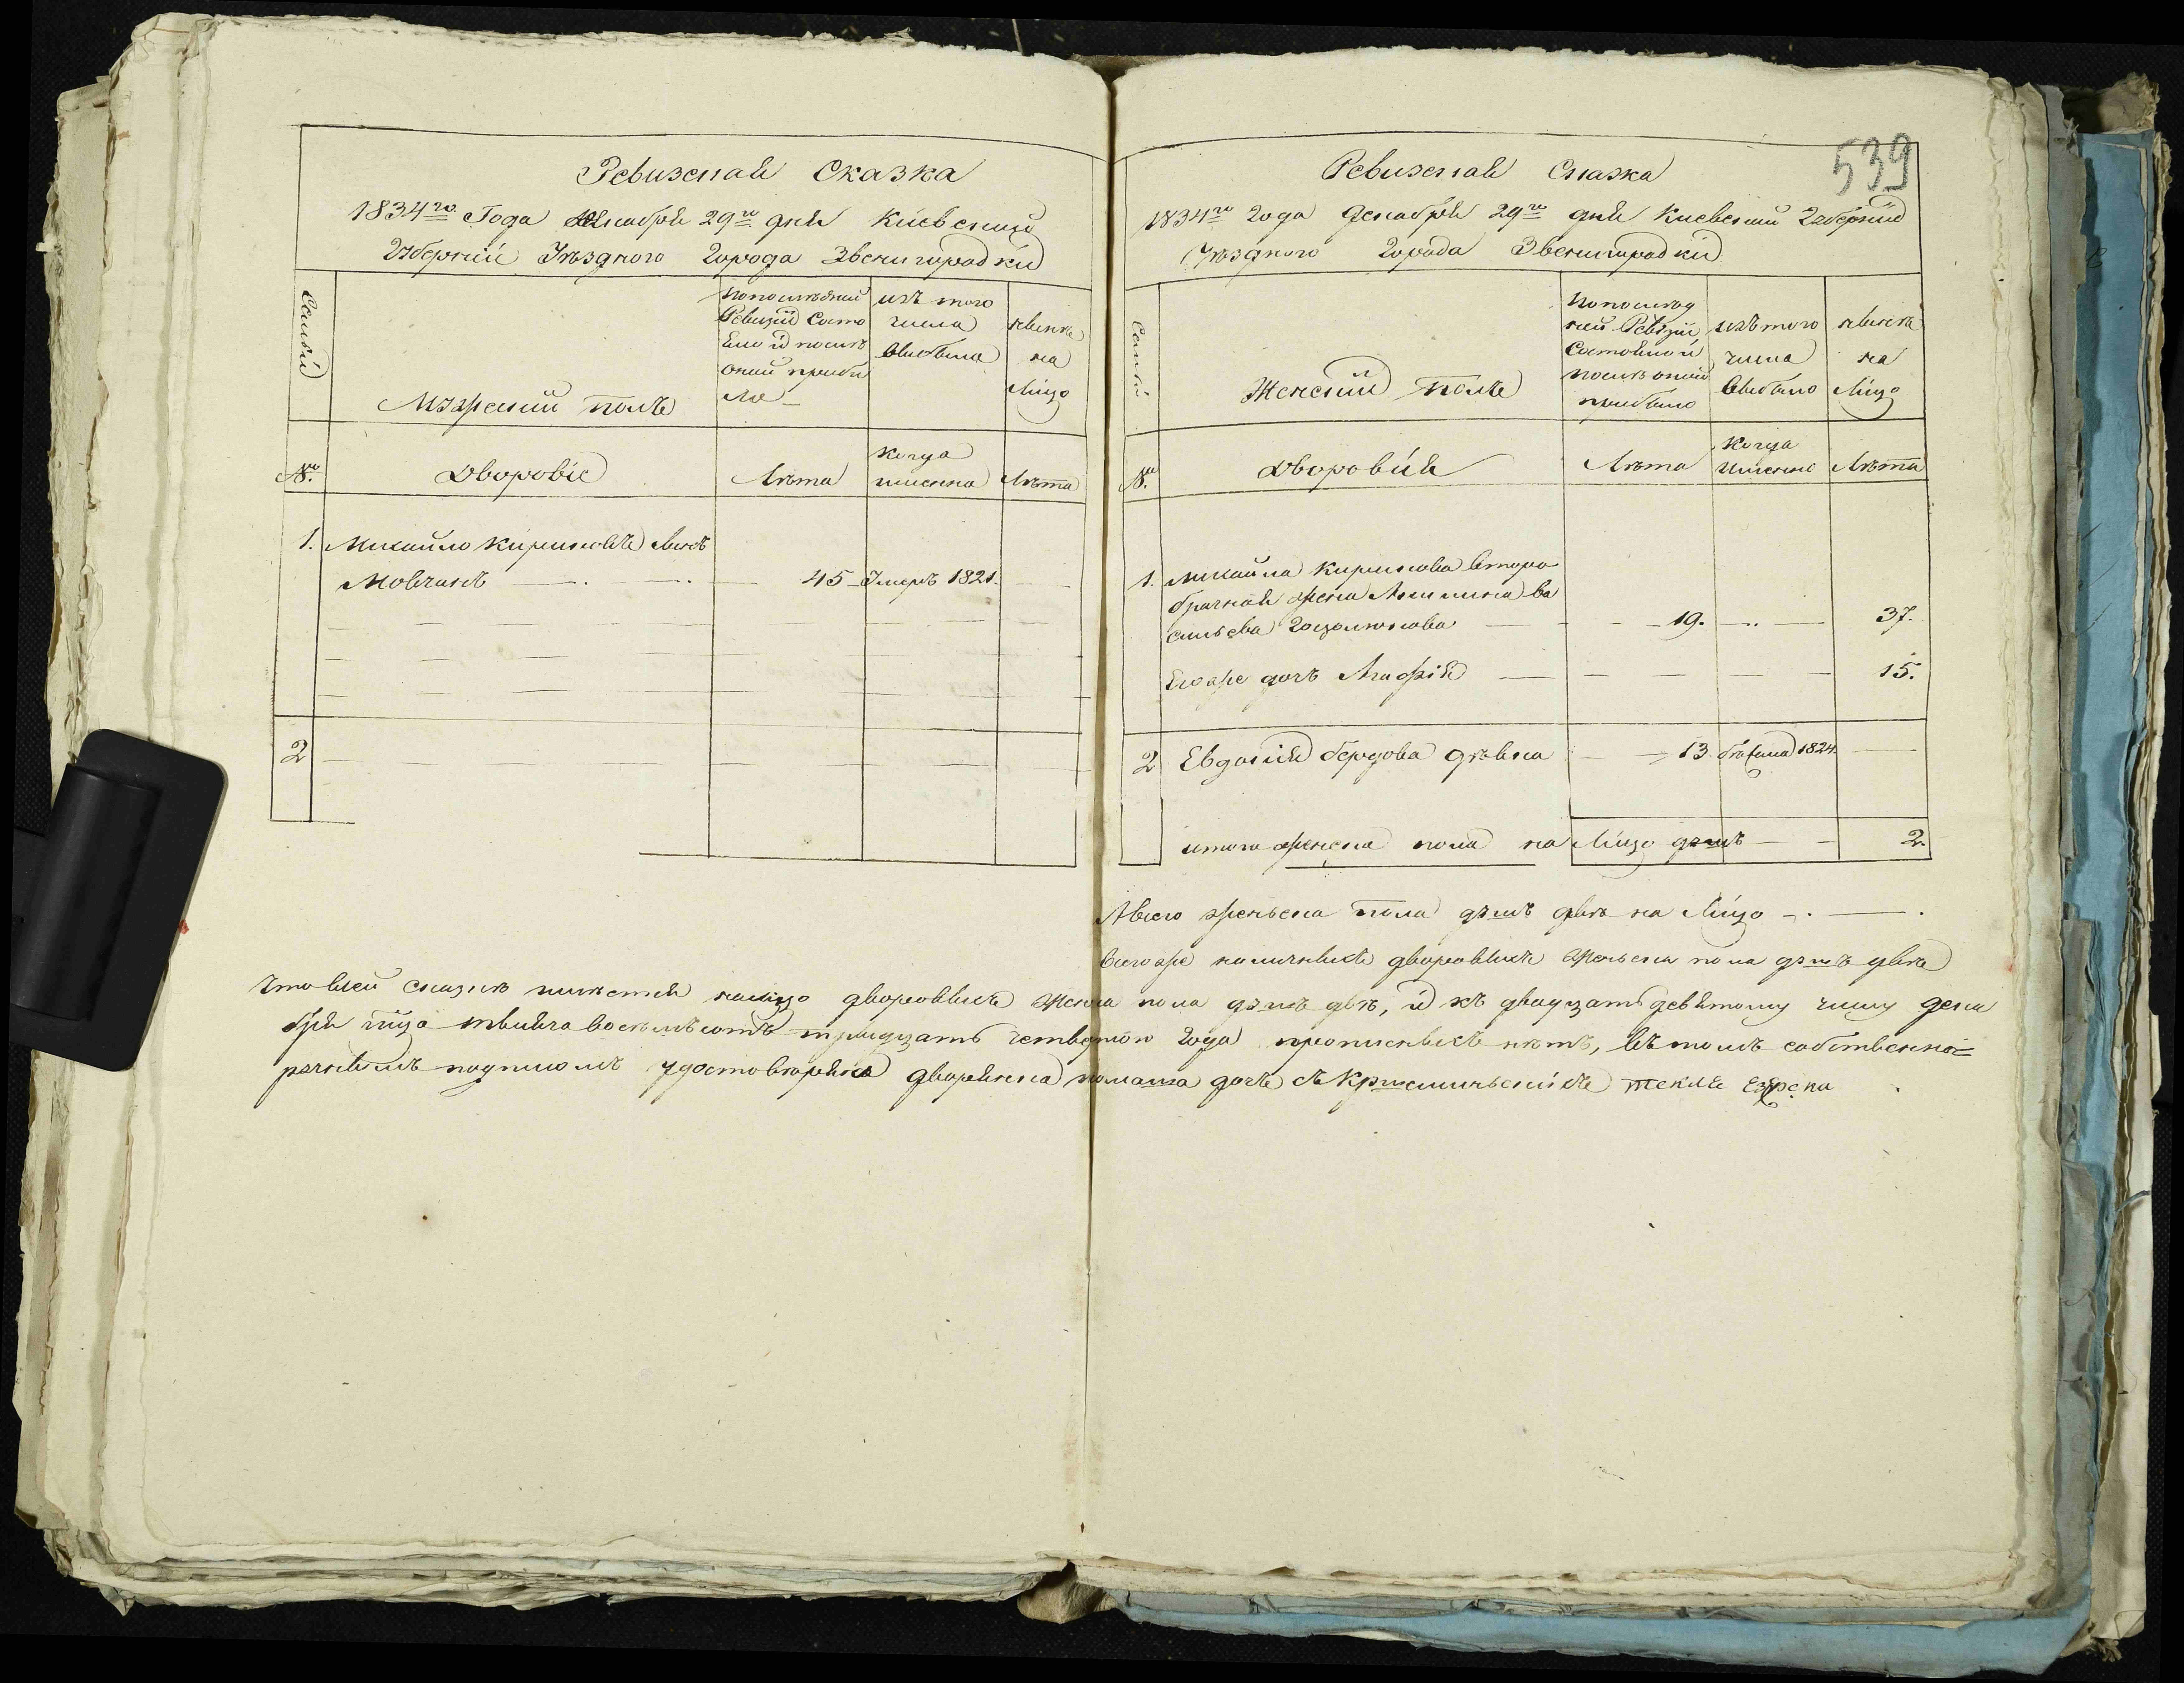 539
Ревизская Сказка
1834го Года Декабря 29го дня Кіевской
Губерніи Уѣздного Города Звенигородки
Семьи
Мужеский полъ
По последней Ревизіи состо
яло и после
оной прибы
ло
изъ того
числа
выбыло
нынѣ
на
Лицо
№.
Дворовіе
Лѣта
когда
именно
Лѣта
1. Михайло Кириловъ сынъ
Мовчанъ 45 Умеръ 1821.
2
Ревизская Сказка
1834го года Декабря 29го дня Киевской Губерніи
Уѣздного Города Звенигородки
Семьи
Женский полъ
По послед
ней Ревизіи
Состояло и
после оной
прибыло
изъ того
числа
выбыло
нынѣ
на
Лицо
№.
Дворовія
Лѣта
Когда
именно
Лѣта
1. Михайла Кирилова второ
брачная жена Ва
сильева 19. 37.
Егоже дочь 15.
2 Евдокія девка 13 1824.
итого женска пола на Лицо душъ 2.
А всего женска пола душъ двѣ на Лицо
Всегоже наличныхъ дворовыхъ женска пола душъ двѣ
Что въ сей сказке имѣется налицо дворовыхъ женска пола душъ двѣ, и къ двадцать девятому числу дека
бря тысяча восемьсотъ тридцать четвертого года прописныхъ нѣтъ, въ томъ собственно=
ручнымъ подписомъ удостоверяю дворянка дочь